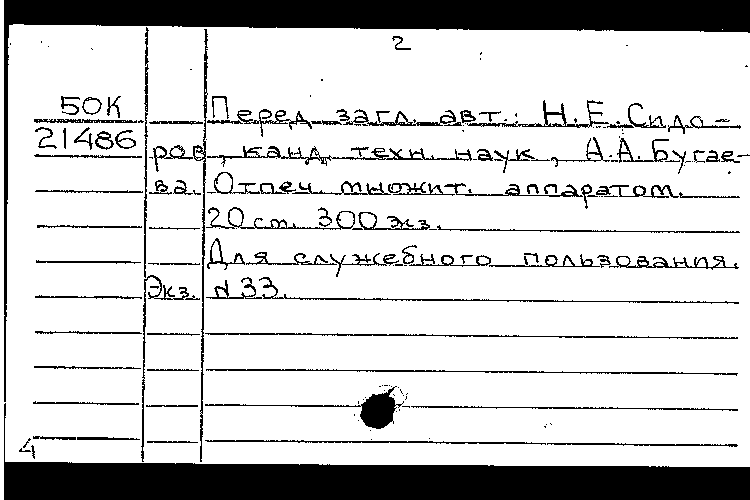 2
50К Перед загл. авт.: Н.Е.Сидо-
21486 ров, канд. техн. наук, А.А.Бугае-
ва. Отпеч. множит. аппаратом.
20 ст. 300 экз.
Для служебного пользования.
Экз. N 33.
4